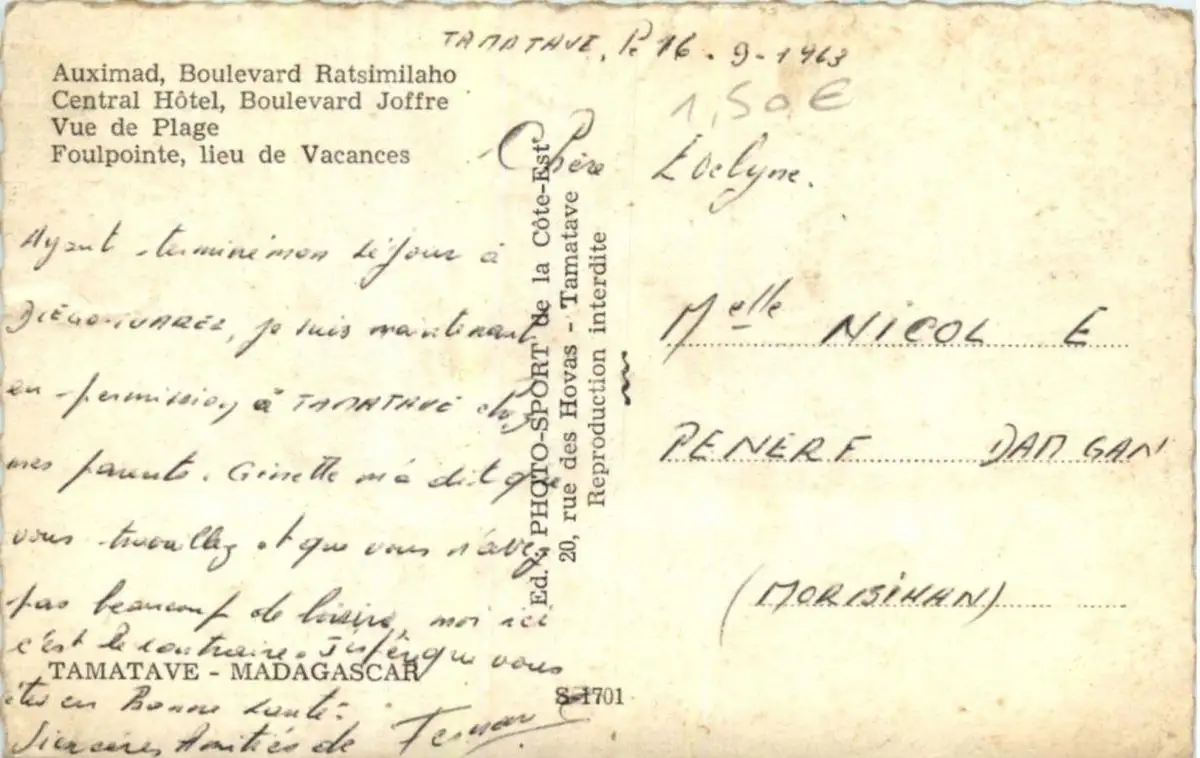 TAMATAVE, le 16-9-1963
1,50€
Auximad, Boulevard Ratsimilaho
Central Hôtel, Boulevard Joffre
Vue de Plage
Foulpointe, lieu de Vacances
Chère Evelyne.
Ayant terminé mon séjour à
DIÉGO-SUAREZ, je suis maintenant
en permission à TAMATAVE chez
mes parents. Ginette m'a dit que
vous travaillez et que vous n'avez
pas beaucoup de loisirs, moi ici
c'est le contraire. J'espère que vous
êtes en Bonne santé.
Sincères Amitiés de
TAMATAVE - MADAGASCAR
Ed. : PHOTO-SPORT de la Côte-Est
20, rue des Hovas - Tamatave
Reproduction interdite
S-1701
Melle NICOL E
PENERF DAMGAN
(MORBIHAN)